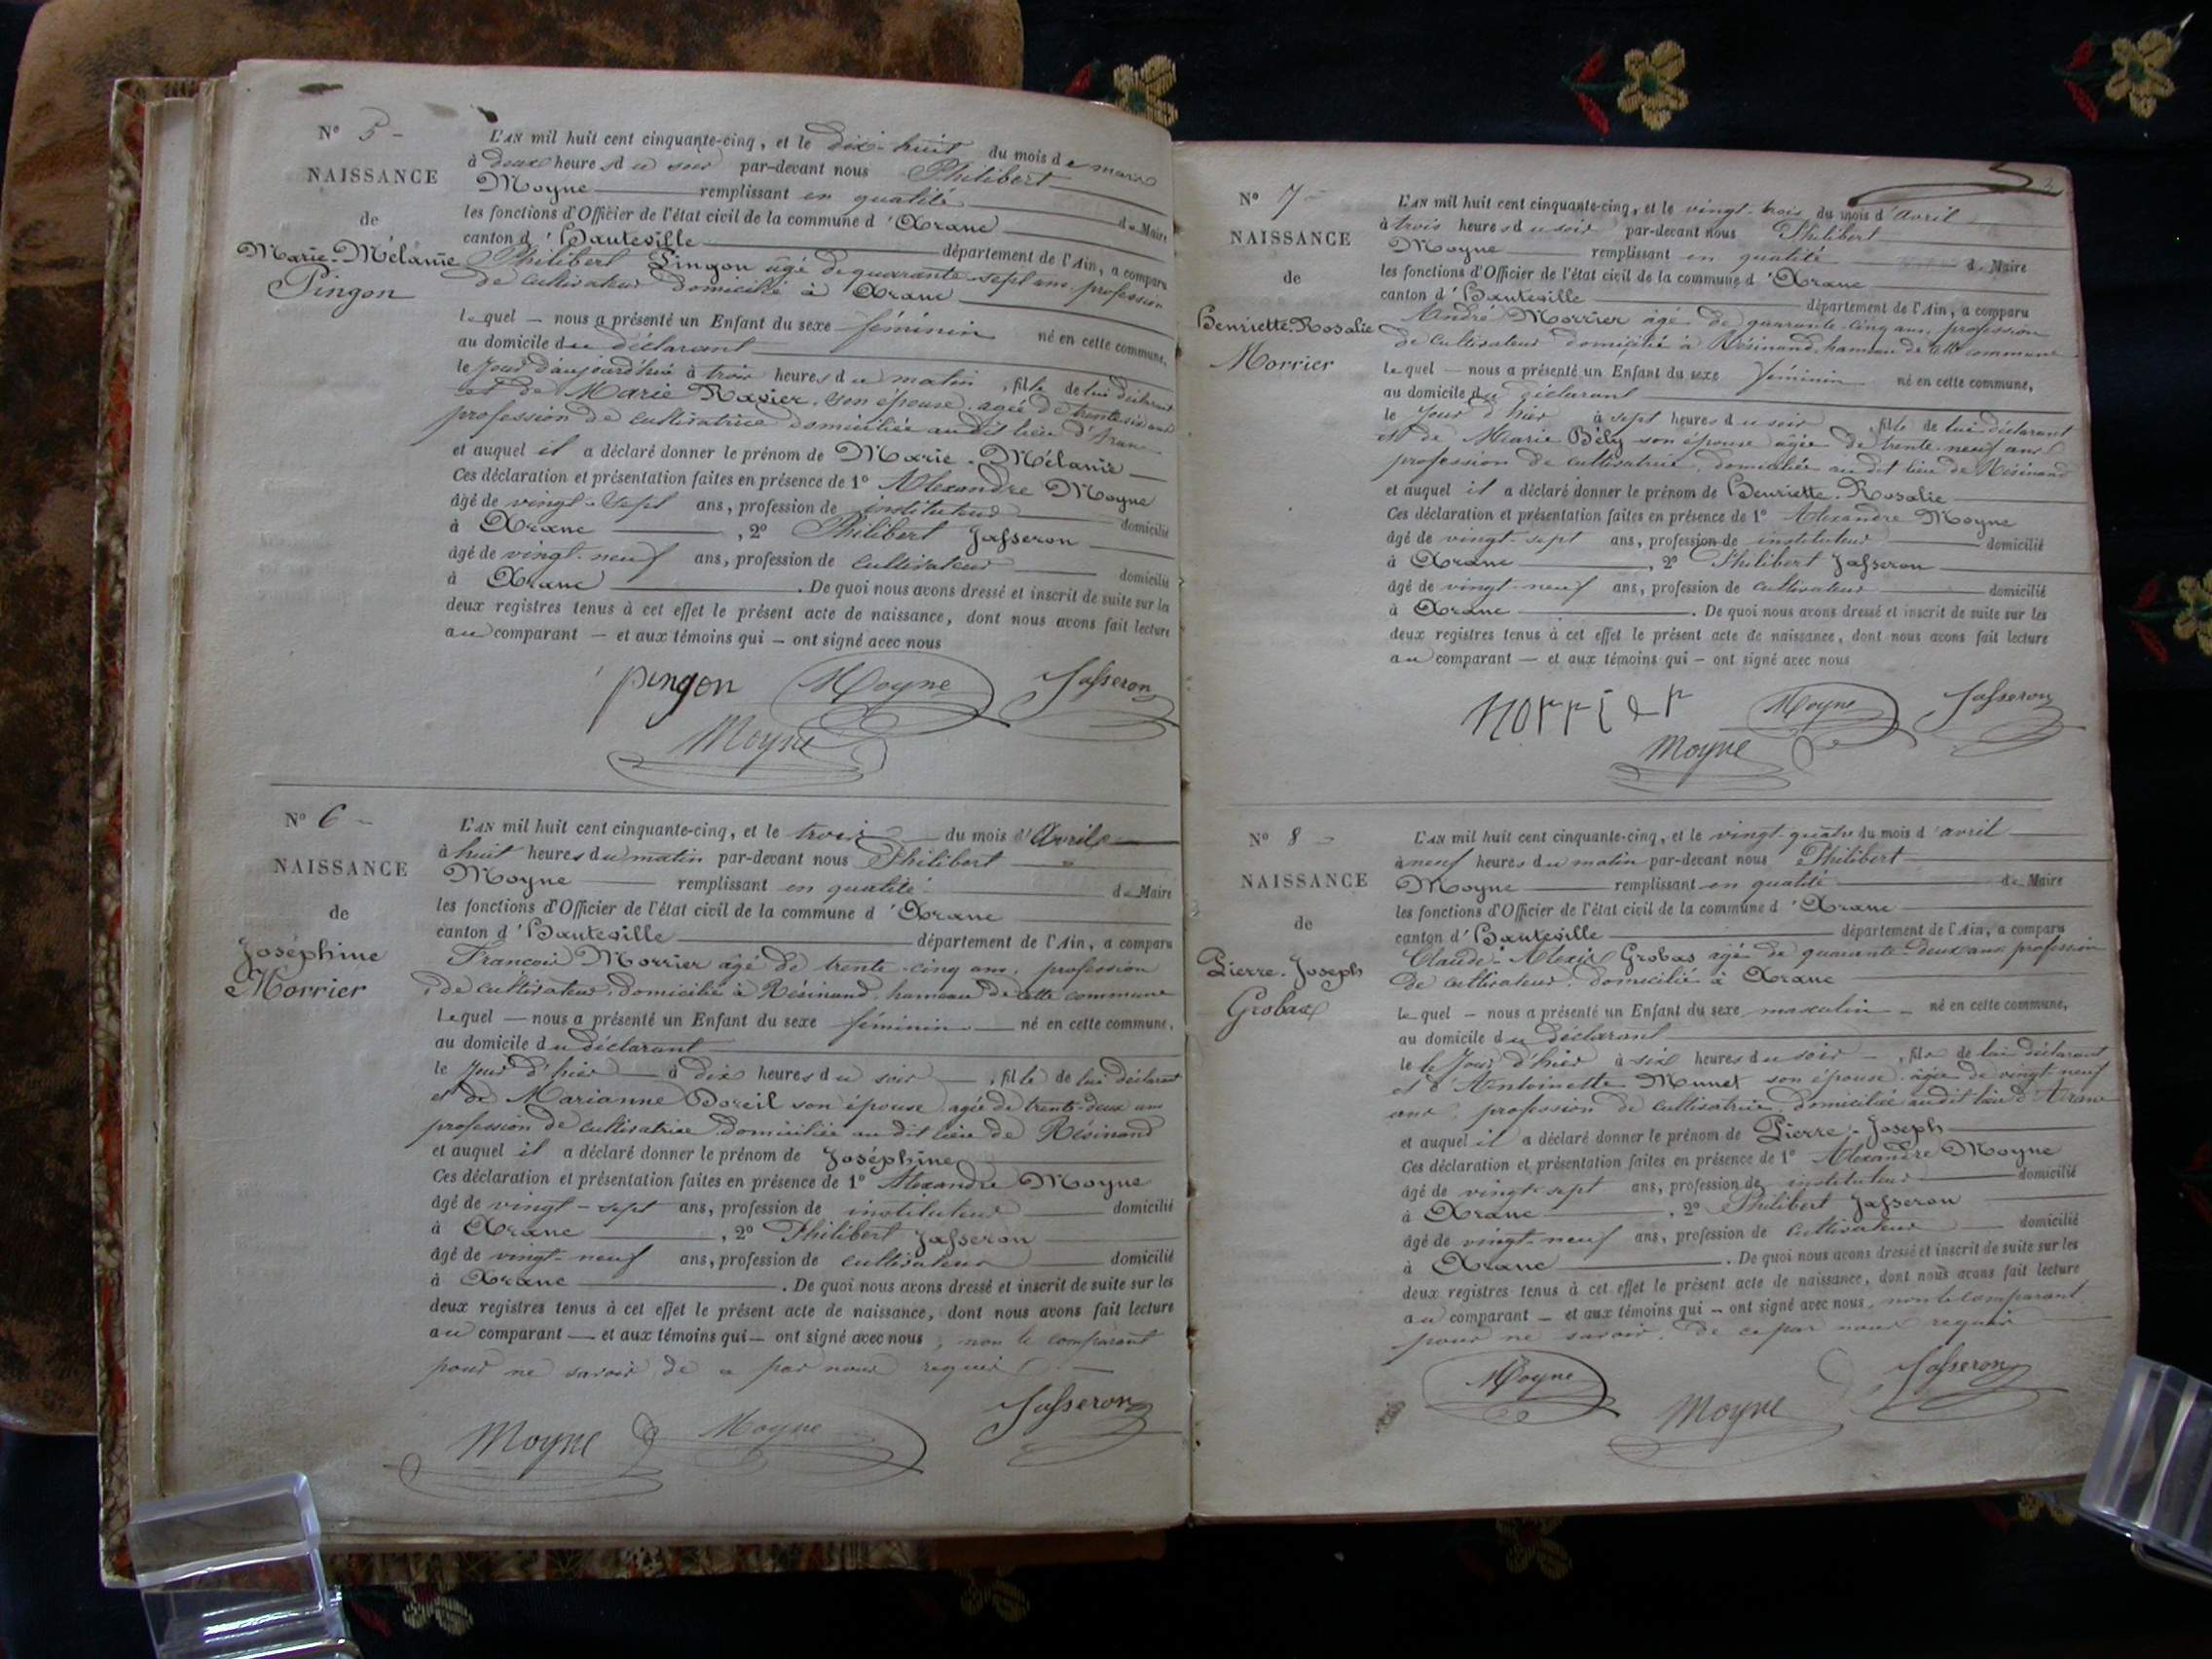 N° 5 -
NAISSANCE
de
Marie-Mélanie
Pingon
L'AN mil huit cent cinquante-cinq, et le dix-huit du mois de mars
à deux heures du soir par-devant nous Philibert
Moyne remplissant en qualité de Maire
les fonctions d'Officier de l'état civil de la commune d'Aranc
canton d'Hauteville département de l'Ain, a comparu
Philibert Pingon âgé de quarante-sept ans, profession
de cultivateur domicilié à Aranc
lequel — nous a présenté un Enfant du sexe féminin né en cette commune,
au domicile du déclarant
le jour d'aujourd'hui à trois heures du matin, fille de lui déclarant
et de Marie Ravier, son épouse, agée de trente six ans
profession de cultivatrice domiciliée audit lieu d'Aranc
et auquel il a déclaré donner le prénom de Marie-Mélanie
Ces déclaration et présentation faites en présence de 1° Alexandre Moyne
âgé de vingt-sept ans, profession de instituteur domicilié
à Aranc, 2° Philibert Jasseron
âgé de vingt-neuf ans, profession de cultivateur domicilié
à Aranc. De quoi nous avons dressé et inscrit de suite sur la
deux registres tenus à cet effet le présent acte de naissance, dont nous avons fait lecture
au comparant — et aux témoins qui — ont signé avec nous
pingon Moyne Jasseron
Moyne
N° 6 -
NAISSANCE
de
Joséphine
Morrier
L'AN mil huit cent cinquante-cinq, et le trois du mois d'Avril
à huit heures du matin par-devant nous Philibert
Moyne remplissant en qualité de Maire
les fonctions d'Officier de l'état civil de la commune d'Aranc
canton d'Hauteville département de l'Ain, a comparu
François Morrier âgé de trente-cinq ans, profession
de cultivateur, domicilié à Résinand, hameau de cette commune
lequel — nous a présenté un Enfant du sexe féminin né en cette commune,
au domicile du déclarant
le jour d'hier à dix heures du soir, fille de lui déclarant
et de Marianne Boreil son épouse agée de trente-deux ans
profession de cultivatrice domiciliée audit lieu de Résinand
et auquel il a déclaré donner le prénom de Joséphine
Ces déclaration et présentation faites en présence de 1° Alexandre Moyne
âgé de vingt-sept ans, profession de instituteur domicilié
à Aranc, 2° Philibert Jasseron
âgé de vingt-neuf ans, profession de cultivateur domicilié
à Aranc. De quoi nous avons dressé et inscrit de suite sur les
deux registres tenus à cet effet le présent acte de naissance, dont nous avons fait lecture
au comparant — et aux témoins qui — ont signé avec nous, non le comparant
pour ne savoir de ce par nous requis
Moyne Moyne Jasseron
N° 7 -
NAISSANCE
de
Henriette-Rosalie
Morrier
L'AN mil huit cent cinquante-cinq, et le vingt-trois du mois d'Avril
à trois heures du soir par-devant nous Philibert
Moyne remplissant en qualité de Maire
les fonctions d'Officier de l'état civil de la commune d'Aranc
canton d'Hauteville département de l'Ain, a comparu
André Morrier âgé de quarante-cinq ans, profession
de cultivateur domicilié à Résinand, hameau de cette commune
lequel — nous a présenté un Enfant du sexe féminin né en cette commune,
au domicile du déclarant
le jour d'hier à sept heures du soir, fille de lui déclarant
et de Marie Bély son épouse agée de trente-neuf ans
profession de cultivatrice, domiciliée audit lieu de Résinand
et auquel il a déclaré donner le prénom de Henriette-Rosalie
Ces déclaration et présentation faites en présence de 1° Alexandre Moyne
âgé de vingt-sept ans, profession de instituteur domicilié
à Aranc, 2° Philibert Jasseron
âgé de vingt-neuf ans, profession de cultivateur domicilié
à Aranc. De quoi nous avons dressé et inscrit de suite sur les
deux registres tenus à cet effet le présent acte de naissance, dont nous avons fait lecture
au comparant — et aux témoins qui — ont signé avec nous
morrier Moyne Jasseron
Moyne
N° 8 -
NAISSANCE
de
Pierre-Joseph
Grobas
L'AN mil huit cent cinquante-cinq, et le vingt-quatre du mois d'avril
à neuf heures du matin par-devant nous Philibert
Moyne remplissant en qualité de Maire
les fonctions d'Officier de l'état civil de la commune d'Aranc
canton d'Hauteville département de l'Ain, a comparu
Claude-Alexis Grobas agé de quarante-deux ans profession
de cultivateur, domicilié à Aranc
lequel — nous a présenté un Enfant du sexe masculin — né en cette commune,
au domicile du déclarant
le le jour d'hier à six heures du soir —, fils de lui déclarant
et d'Antoinette Munet son épouse agée de vingt-neuf
ans, profession de cultivatrice, domiciliée audit lieu d'Aranc
et auquel il a déclaré donner le prénom de Pierre-Joseph
Ces déclaration et présentation faites en présence de 1° Alexandre Moyne
âgé de vingt-sept ans, profession de instituteur domicilié
à Aranc, 2° Philibert Jasseron
âgé de vingt-neuf ans, profession de cultivateur domicilié
à Aranc. De quoi nous avons dressé et inscrit de suite sur les
deux registres tenus à cet effet le présent acte de naissance, dont nous avons fait lecture
au comparant — et aux témoins qui — ont signé avec nous, non le comparant
pour ne savoir, de ce par nous requis
Moyne Moyne Jasseron